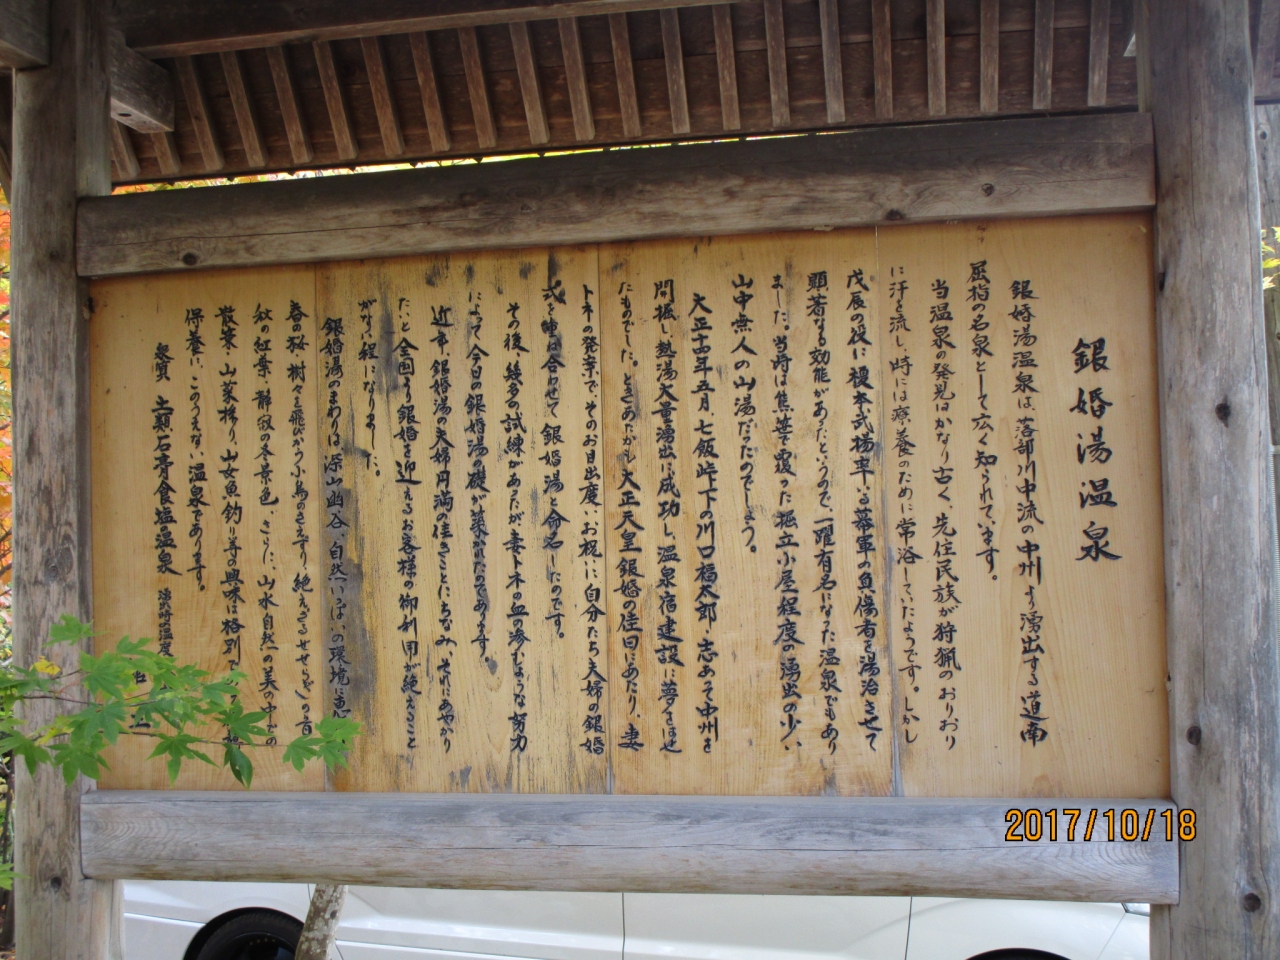 銀婚湯温泉
銀婚湯温泉は、落部川中流の中州より湧出する道南
屈指の名泉として広く知られています。
当温泉の発見はかなり古く、先住民族が狩猟のおりおり
に汗を流し、時には療養のために常浴していたようです。しかし
戊辰の役に榎本武揚率いる幕軍の負傷者を湯治させて
顕著なる効能があったというので、一躍有名になった温泉でもあり
ました。当時は熊笹で覆った掘立小屋程度の湧出の少い
山中無人の山湯だったのでしょう。
大正十四年五月、七飯峠下の川口福太郎・志あそ中州を
問掘し、熱湯大量湧出に成功し、温泉宿建設に夢をはせ
たものでした。ときあたかも大正天皇銀婚の佳日にあたり、妻
トネの発案で、そのお目出度いお祝いに自分たち夫婦の銀婚
式を合わせて銀婚湯と命名したのです。
その後、幾多の試練があったが、妻トネの血の滲むような努力
によって今日の銀婚湯の礎が築かれたのであります。
近年、銀婚湯の夫婦円満の佳きことにちなみ、それにあやかり
たいと全国より銀婚を迎えるお客様の御利用が絶えること
がない程になりました。
銀婚湯のまわりは深山幽谷、自然いっぱいの環境に恵
春の桜・樹々を飛びかう小鳥のさえずり、絶えざるせせらぎの音
秋の紅葉・静寂の冬景色、さらに、山水自然の美の中での
散策・山菜採り、山女魚釣り等の興味は格別で
保養に、このうえない温泉であります。
泉質 土類石膏食塩温泉 湧出時の温度